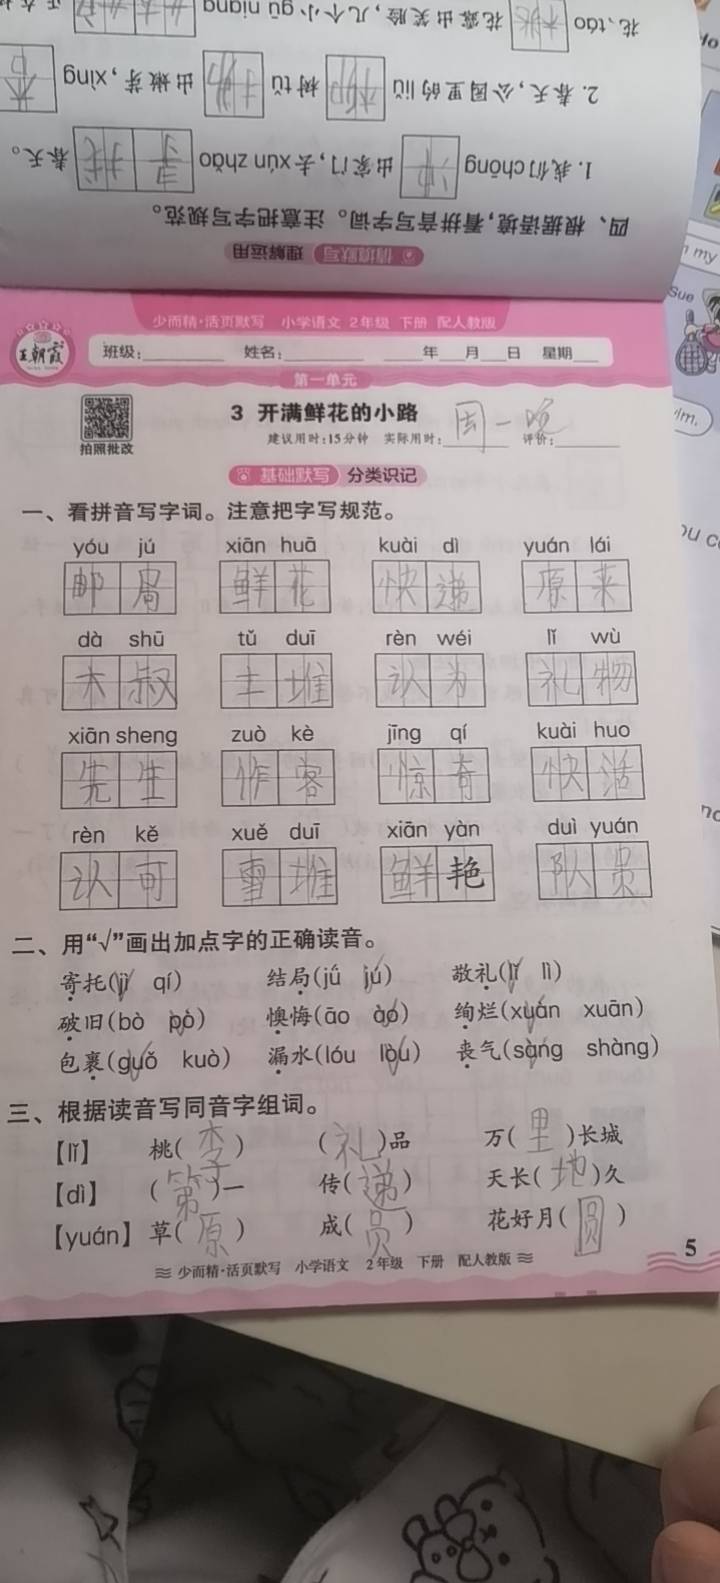 花、táo 桃 花露出笑脸，几个小 gū niang
2. 春天，公园里的 liǔ 柳 树 tǔ 吐 出嫩芽，xìng 杏
1. 我们 chōng 冲 出家门，去 xún zhǎo 寻 找 春天。
四、根据语境，看拼音写字词。注意把字写规范。
情境默写 理解运用
少而精·活页默写 小学语文 2年级 下册 配人教版
王朝霞 班级：______ 姓名：______ ____年__月__日 星期___
第一单元
3 开满鲜花的小路
建议用时：15分钟 实际用时：周一晚 评价：
拍照批改
基础默写 分类识记
一、看拼音写字词。注意把字写规范。
yóu jú xiān huā kuài dì yuán lái
邮局 鲜花 快递 原来
dà shū tǔ duī rèn wéi lǐ wù
大叔 土堆 认为 礼物
xiān sheng zuò kè jīng qí kuài huo
先生 作客 惊奇 快活
rèn kě xuě duī xiān yàn duì yuán
认可 雪堆 鲜艳 队员
二、用“√”画出加点字的正确读音。
寄托(jì qí) 结局(jǔ jú) 敬礼(lǐ lì)
破旧(bò pò) 懊悔(āo ào) 绚烂(xuàn xuān)
包裹(guǒ kuò) 漏水(lóu lòu) 丧气(sàng shàng)
三、根据读音写同音字组词。
【lǐ】 桃(李) (礼)品 万(里)长城
【dì】 (第)一 传(递) 天长(地)久
【yuán】 草(原) 成(员) 花好月(圆)
少而精·活页默写 小学语文 2年级 下册 配人教版
5